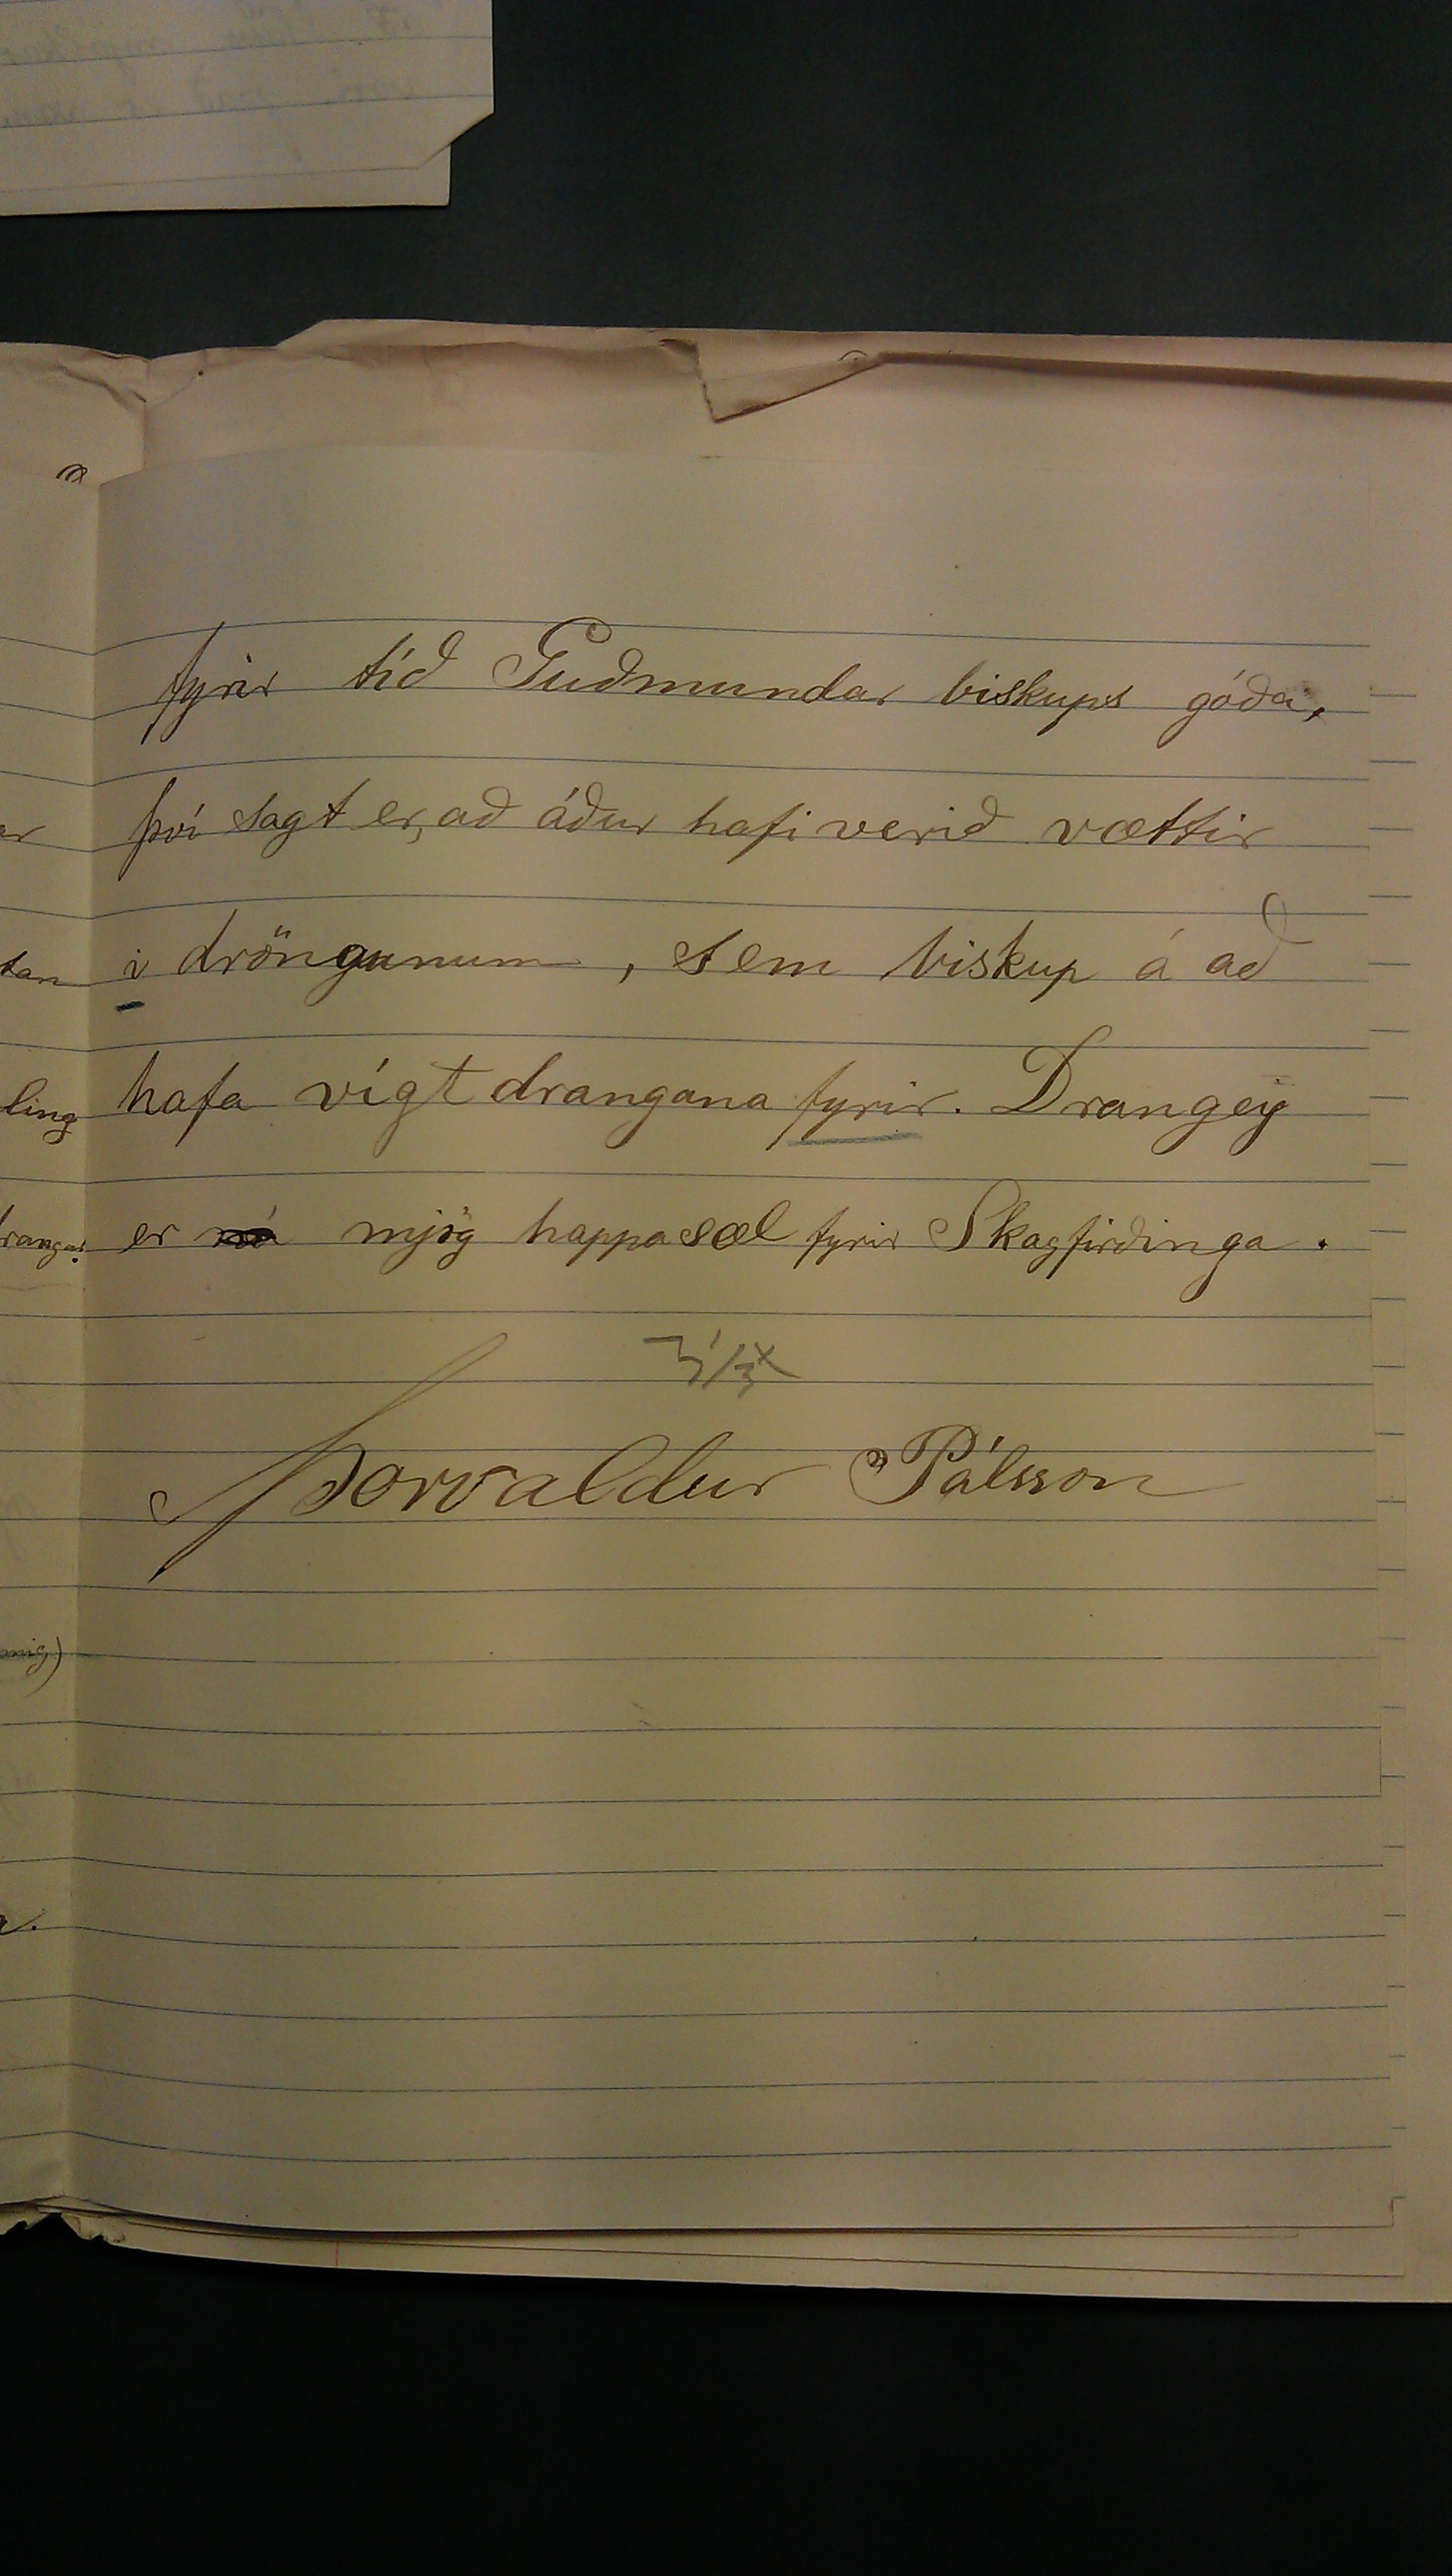 fyrir tíð Guðmundar biskups góða,
því sagt er, að áður hafi verið vættir
í dröngunum, sem biskup á að
hafa vígt drangana fyrir. Drangey
er mjög happasæl fyrir Skagfirðinga.
Þorvaldur Pálsson